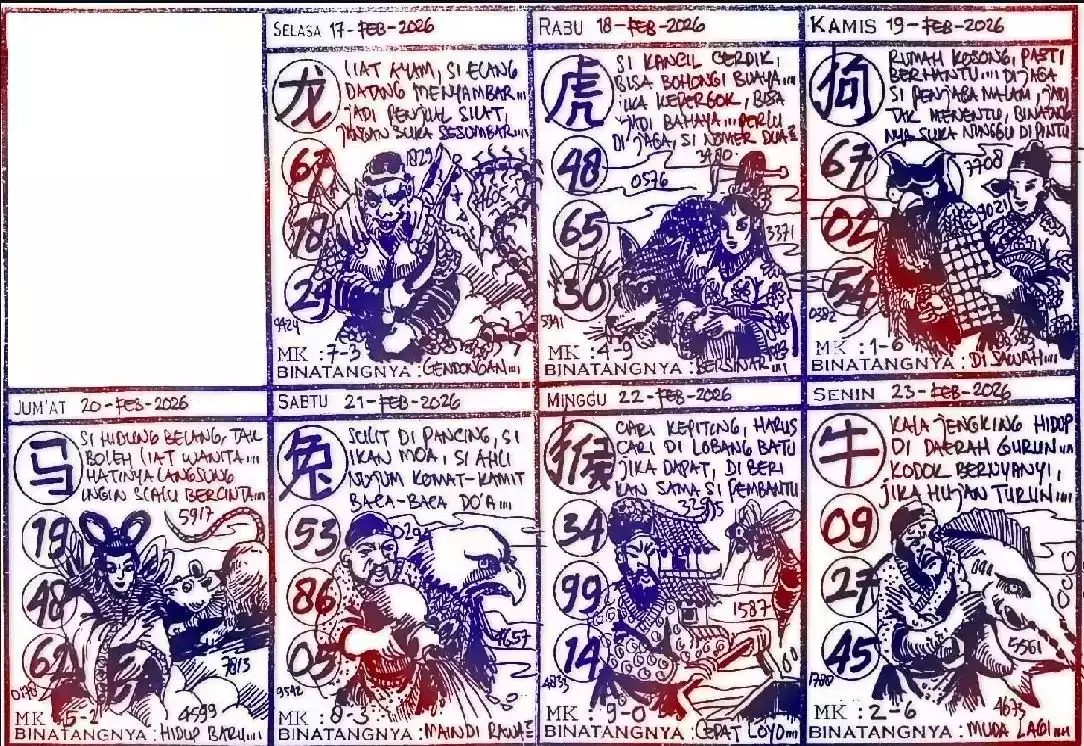 SELASA 17-FEB-2026
龙
LIAT AYAM, SI ELANG
DATANG MENYAMBAR....
JADI PENJUAL SILAT,
JANGAN SUKA SESOMBAR....
1829
67
18
29
9424
MK : 7-3
BINATANGNYA : GENDONGAN....
RABU 18-FEB-2026
虎
SI KANCIL CERDIK,
BISA BOHONGI BUAYA....
JIKA KEPERGOK, BISA
JADI BAHAYA.... PERLU
DI JAGA, SI NOMER DUA
3480
0576
48
65
30
3371
5341
MK : 4-9
BINATANGNYA : BERSINAR....
KAMIS 19-FEB-2026
狗
RUMAH KOSONG, PASTI
BERHANTU.... DI JAGA
SI PENJAGA MALAM, JADI
TAK MENENTU, BINATANG
NYA SUKA NUNGGU DI PINTU
3708
9021
67
02
54
0382
MK : 1-6
BINATANGNYA : DI SAWAH....
JUM'AT 20-FEB-2026
马
SI HIDUNG BELANG, TAK
BOLEH LIAT WANITA....
HATINYA LANGSUNG
INGIN SELALU BERCINTA....
5917
19
48
62
7815
4599
MK : 5-2
BINATANGNYA : HIDUP BARU....
SABTU 21-FEB-2026
兔
SULIT DI PANCING, SI
IKAN MOA, SI AHLI
NUJUM KOMAT-KAMIT
BACA-BACA DO'A....
0294
53
86
05
4657
9542
MK : 8-3
BINATANGNYA : MAINDI RAWA
MINGGU 22-FEB-2026
猴
CARI KEPITING, HARUS
CARI DI LOBANG BATU
JIKA DAPAT, DI BERI
KAN SAMA SI PEMBANTU
34
99
14
1587
4833
MK : 9-0
BINATANGNYA : CEPAT LOYO....
SENIN 23-FEB-2026
牛
KALA JENGKING HIDUP
DI DAERAH GURUN....
KODOK BERNYANYI,
JIKA HUJAN TURUN....
09
27
45
5561
1780
4673
MK : 2-6
BINATANGNYA : MUDA LAGI....